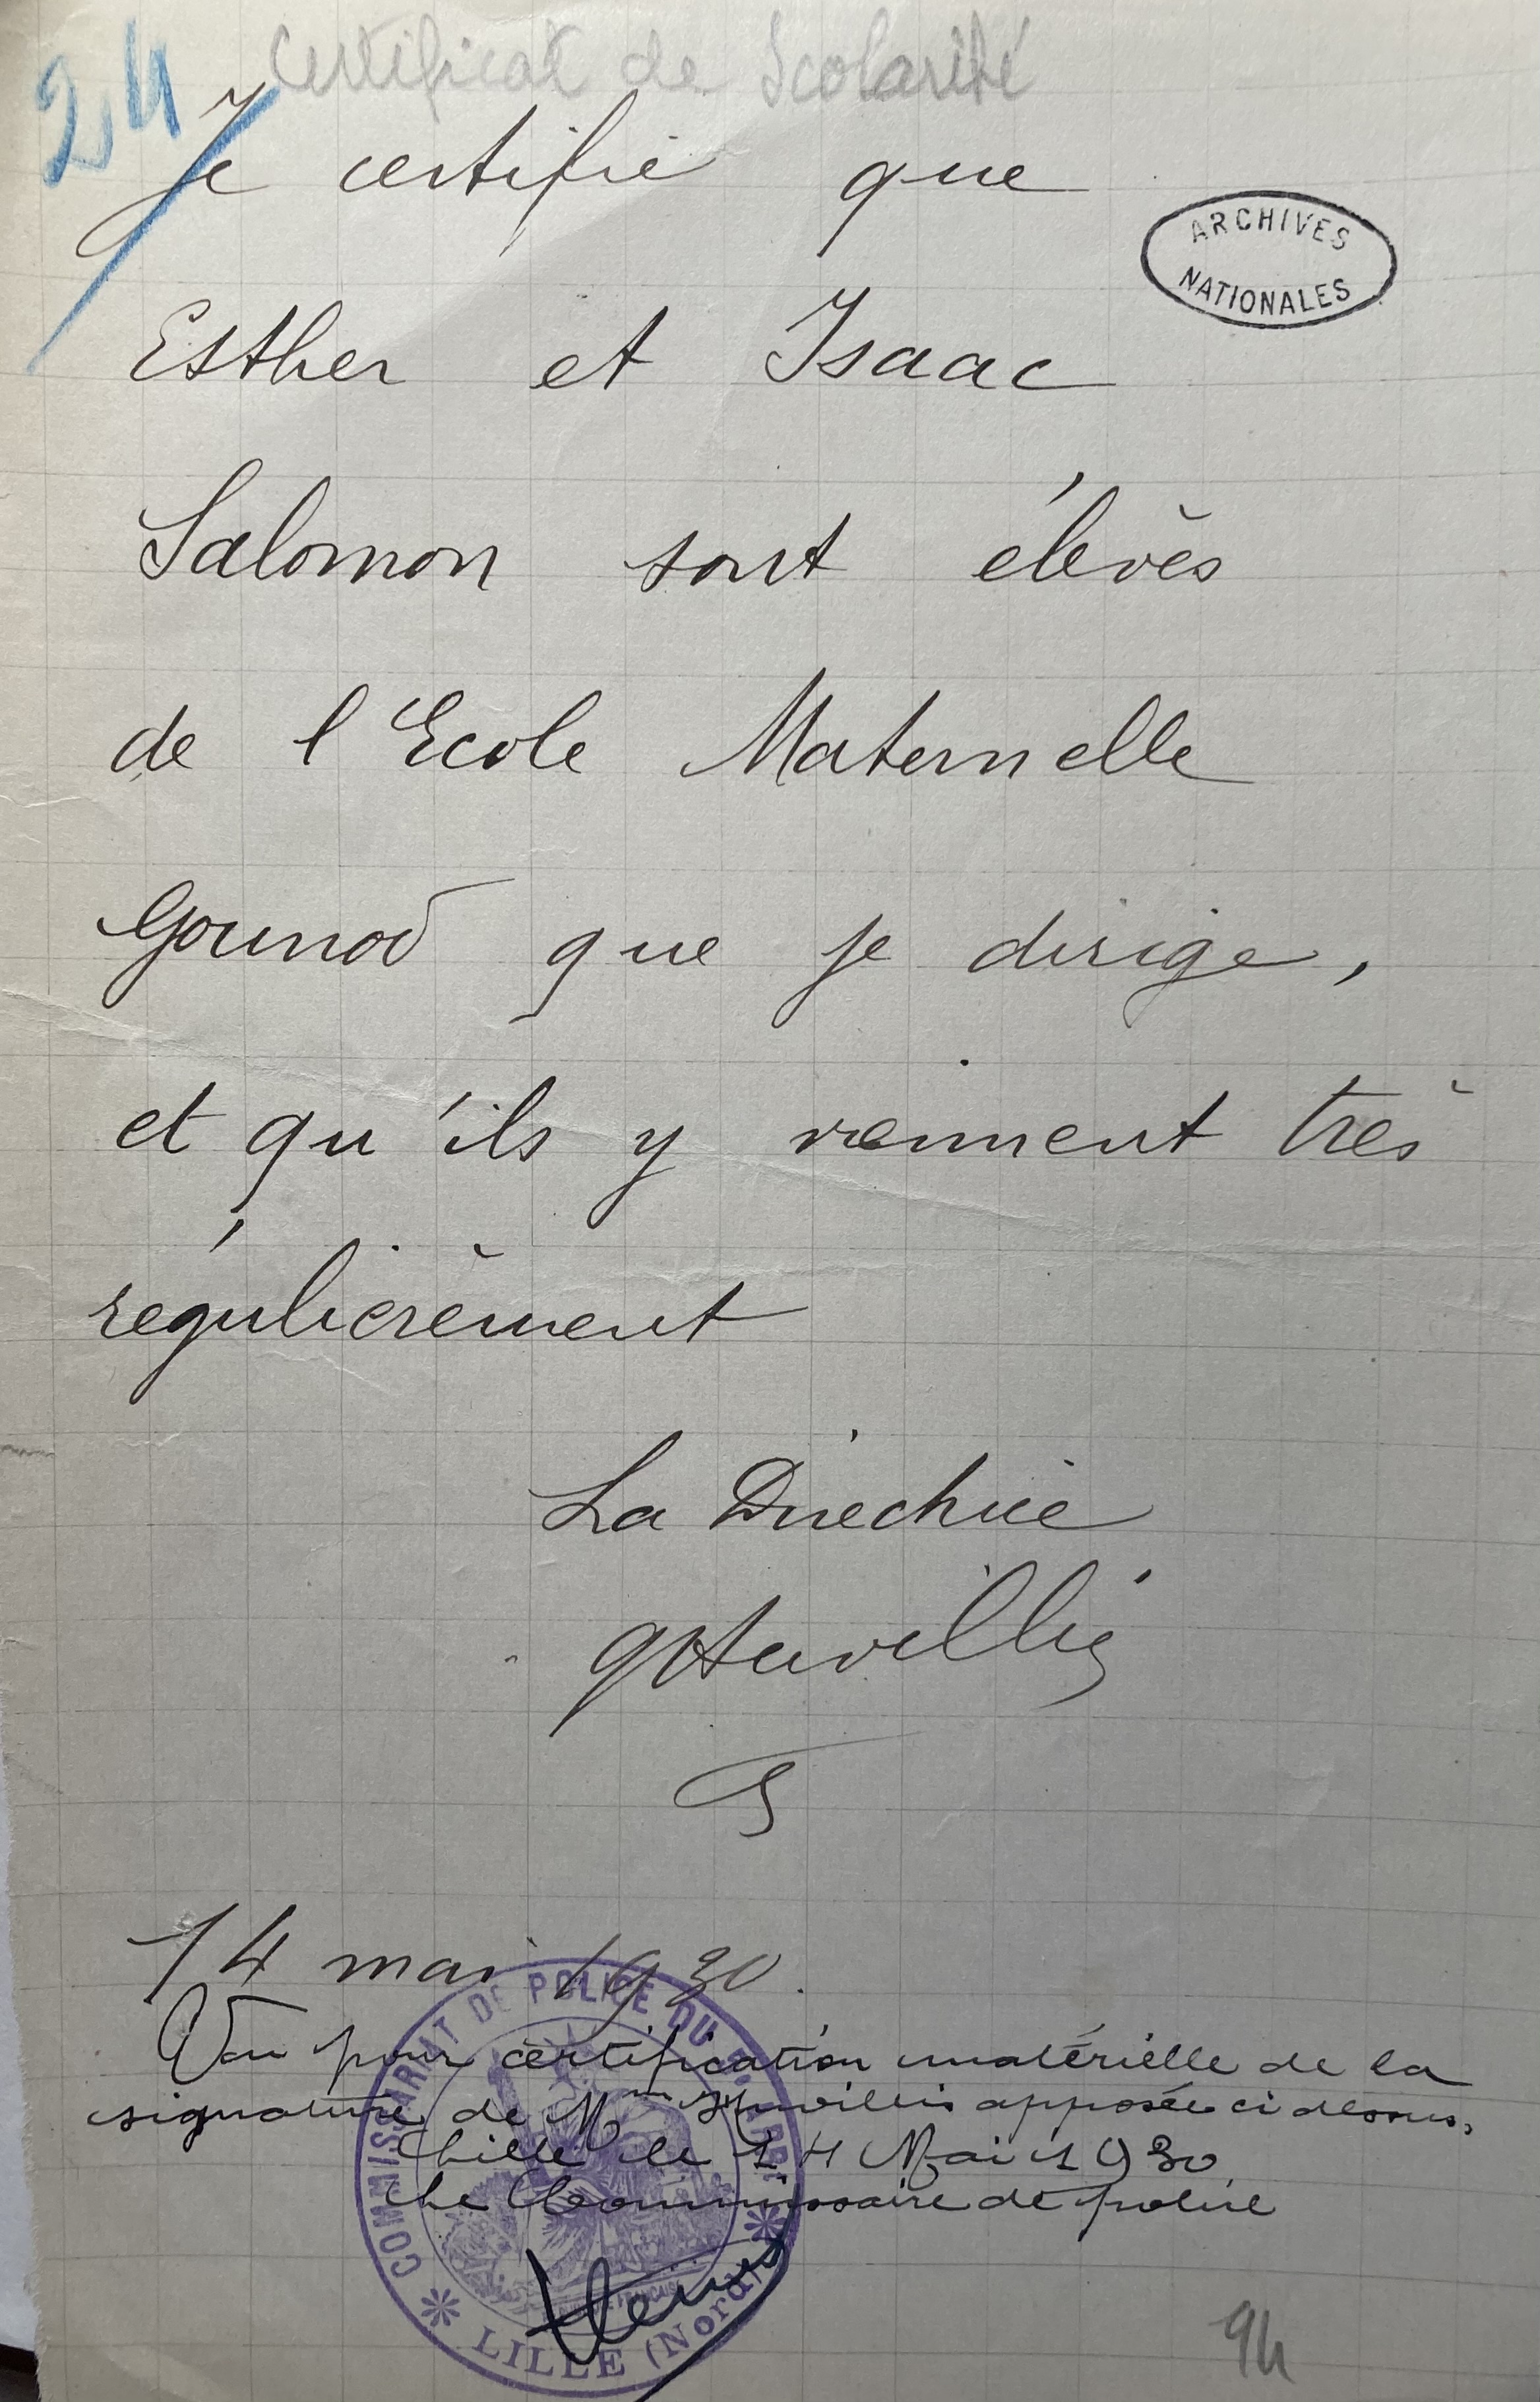 24
Certificat de Scolarité
Je certifie que
ARCHIVES
NATIONALES
Esther et Isaac
Salomon sont élèves
de l'Ecole Maternelle
Gounod que je dirige,
et qu'ils y viennent très
régulièrement
La Directrice
14 mai 1930.
Vu pour certification matérielle de la
signature de Mme apposée ci dessus,
Lille le 14 Mai 1930
Le Commissaire de police
COMMISSARIAT DE POLICE DU ARRt
LILLE (Nord)
94